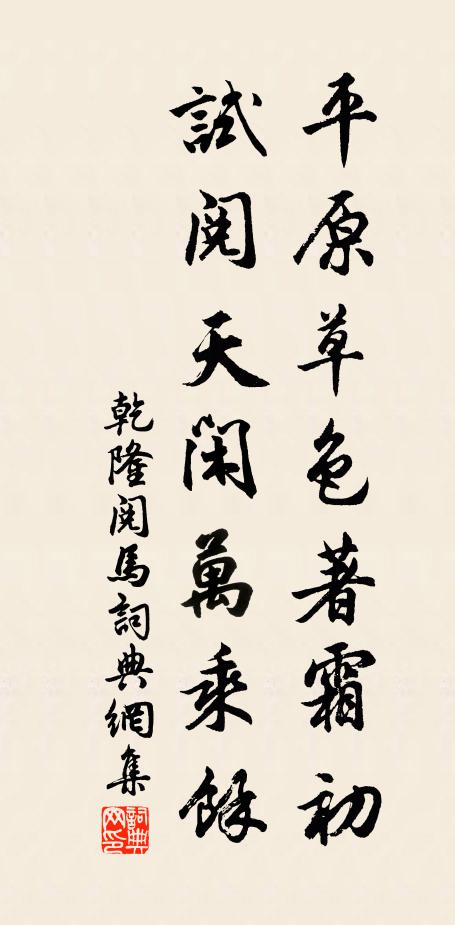 平原草色著霜初
試閱天閑萬乘餘
乾隆閱馬詞典網集
詞典網印